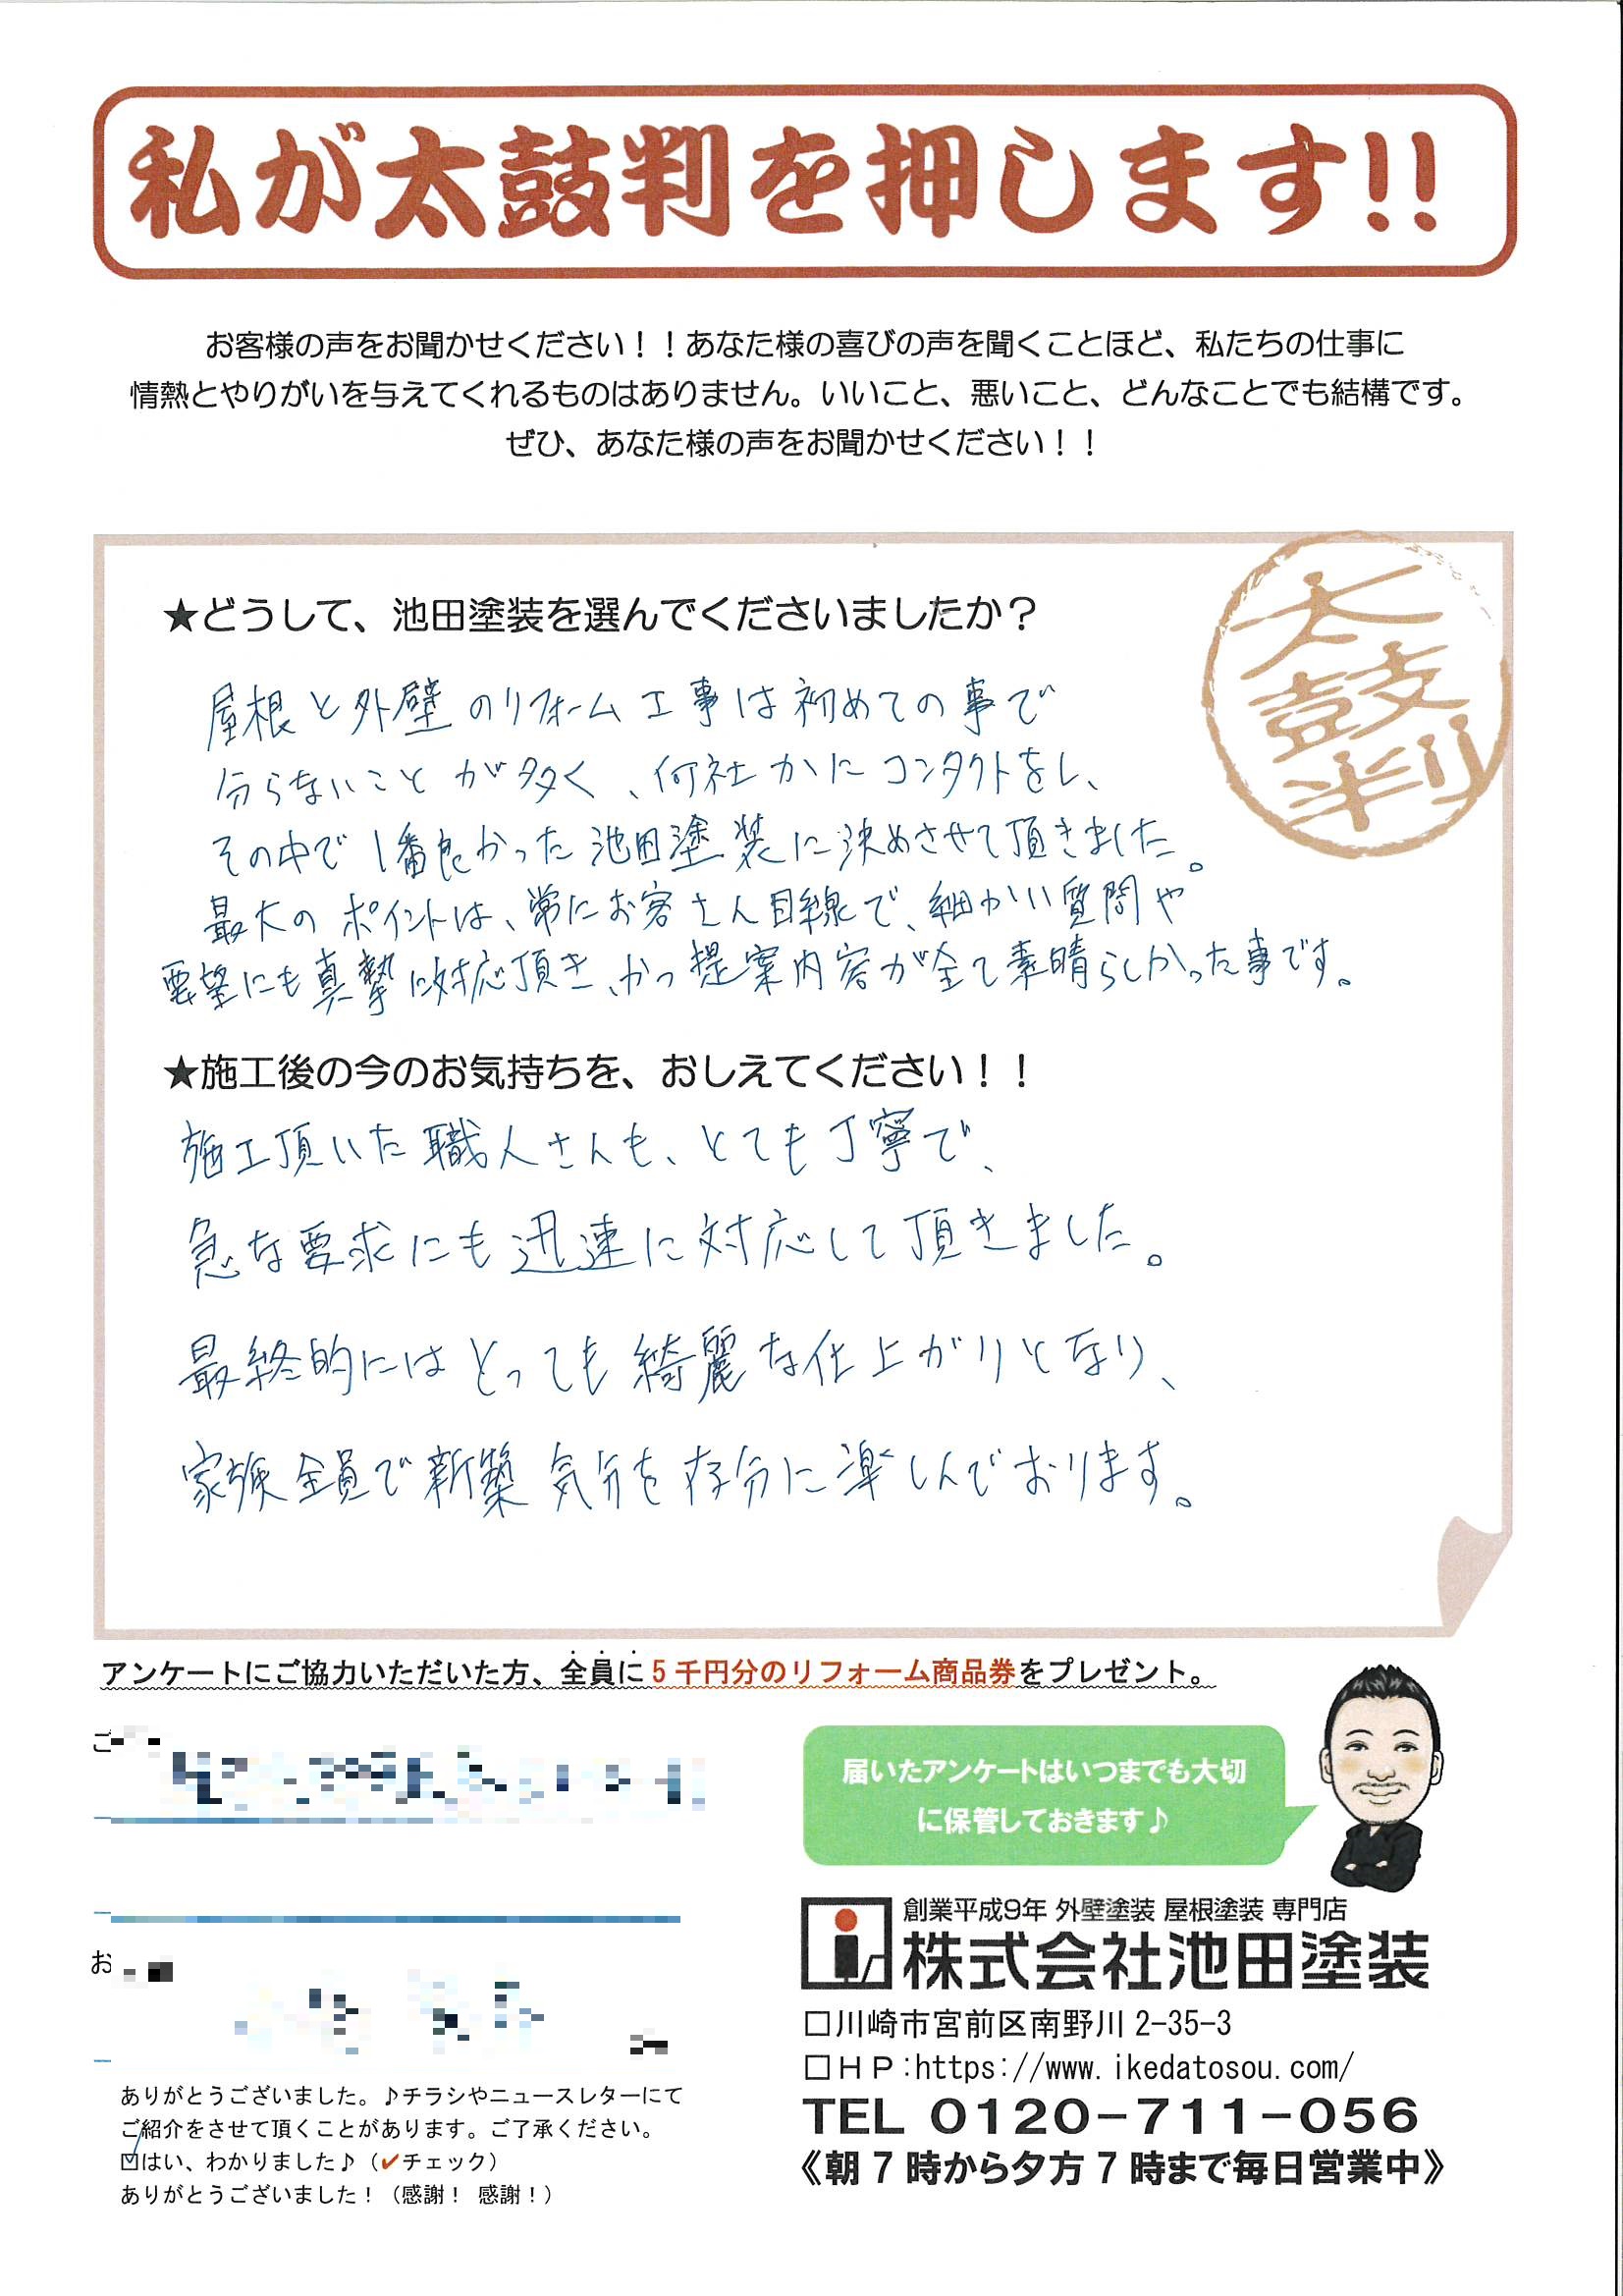 私が太鼓判を押します!!
お客様の声をお聞かせください！！あなた様の喜びの声を聞くことほど、私たちの仕事に
情熱とやりがいを与えてくれるものはありません。いいこと、悪いこと、どんなことでも結構です。
ぜひ、あなた様の声をお聞かせください！！
太鼓判
★どうして、池田塗装を選んでくださいましたか？
屋根と外壁のリフォーム工事は初めての事で
分らないことが多く、何社かにコンタクトをし、
その中で1番良かった池田塗装に決めさせて頂きました。
最大のポイントは、常にお客さん目線で、細かい質問や
要望にも真摯に対応頂き、かつ提案内容が全て素晴らしかった事です。
★施工後の今のお気持ちを、おしえてください！！
施工頂いた職人さんも、とても丁寧で、
急な要求にも迅速に対応して頂きました。
最終的にはとっても綺麗な仕上がりとなり、
家族全員で新築気分を存分に楽しんでおります。
アンケートにご協力いただいた方、全員に5千円分のリフォーム商品券をプレゼント。
ご
お
届いたアンケートはいつまでも大切
に保管しておきます♪
創業平成9年 外壁塗装 屋根塗装 専門店
株式会社池田塗装
□川崎市宮前区南野川2-35-3
□HP:https://www.ikedatosou.com/
TEL 0120-711-056
《朝7時から夕方7時まで毎日営業中》
ありがとうございました。♪チラシやニュースレターにて
ご紹介をさせて頂くことがあります。ご了承ください。
☑はい、わかりました♪（✔チェック）
ありがとうございました！（感謝！ 感謝！）